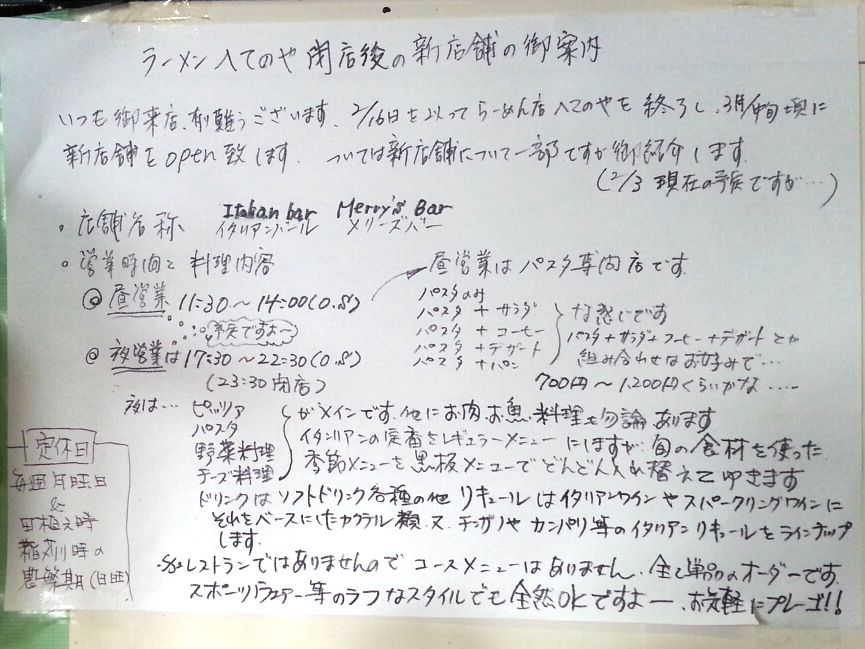 ラーメン 人てのや 閉店後の新店舗の御案内
いつも御来店、有難うございます。2/16日を以ってらーめん店人てのやを終了し、3月中旬頃に
新店舗をopen致します。ついては新店舗について一部ですが御紹介します。
(2/3 現在の予定ですが…)
・店舗名称 Italian bar Merry's Bar
イタリアンバール メリーズバー
・営業時間と料理内容
◎昼営業 11:30〜14:00(O.S)
予定ですよ〜
◎夜営業は17:30〜22:30(O.S)
(23:30閉店)
昼営業はパスタ専門店です。
パスタのみ
パスタ + サラダ
パスタ + コーヒー
パスタ + デザート
パスタ + パン
な感じです
パスタ+サラダ+コーヒー+デザートとか
組み合わせはお好みで…
700円〜1,200円くらいかな……
夜は… ピッツァ
パスタ
野菜料理
チーズ料理
がメインです。他にお肉、お魚、料理も勿論あります
イタリアンの定番をレギュラーメニューにしますが、旬の食材を使った
季節メニューを黒板メニューでどんどん入れ替えてゆきます
ドリンクはソフトドリンク各種の他 リキュールはイタリアワインやスパークリングワインに
それをベースにしたカクテル類、又、チナールやカンパリ等のイタリアンリキュールをラインナップ
します。
レストランではありませんので コースメニューはありません、全て単品のオーダーです。
スポーツウェアー等のラフなスタイルでも全然OKですよー、お気軽にプレーゴ!!
定休日
毎週月曜日
&
田植え時
稲刈時の
農繁期(日曜)